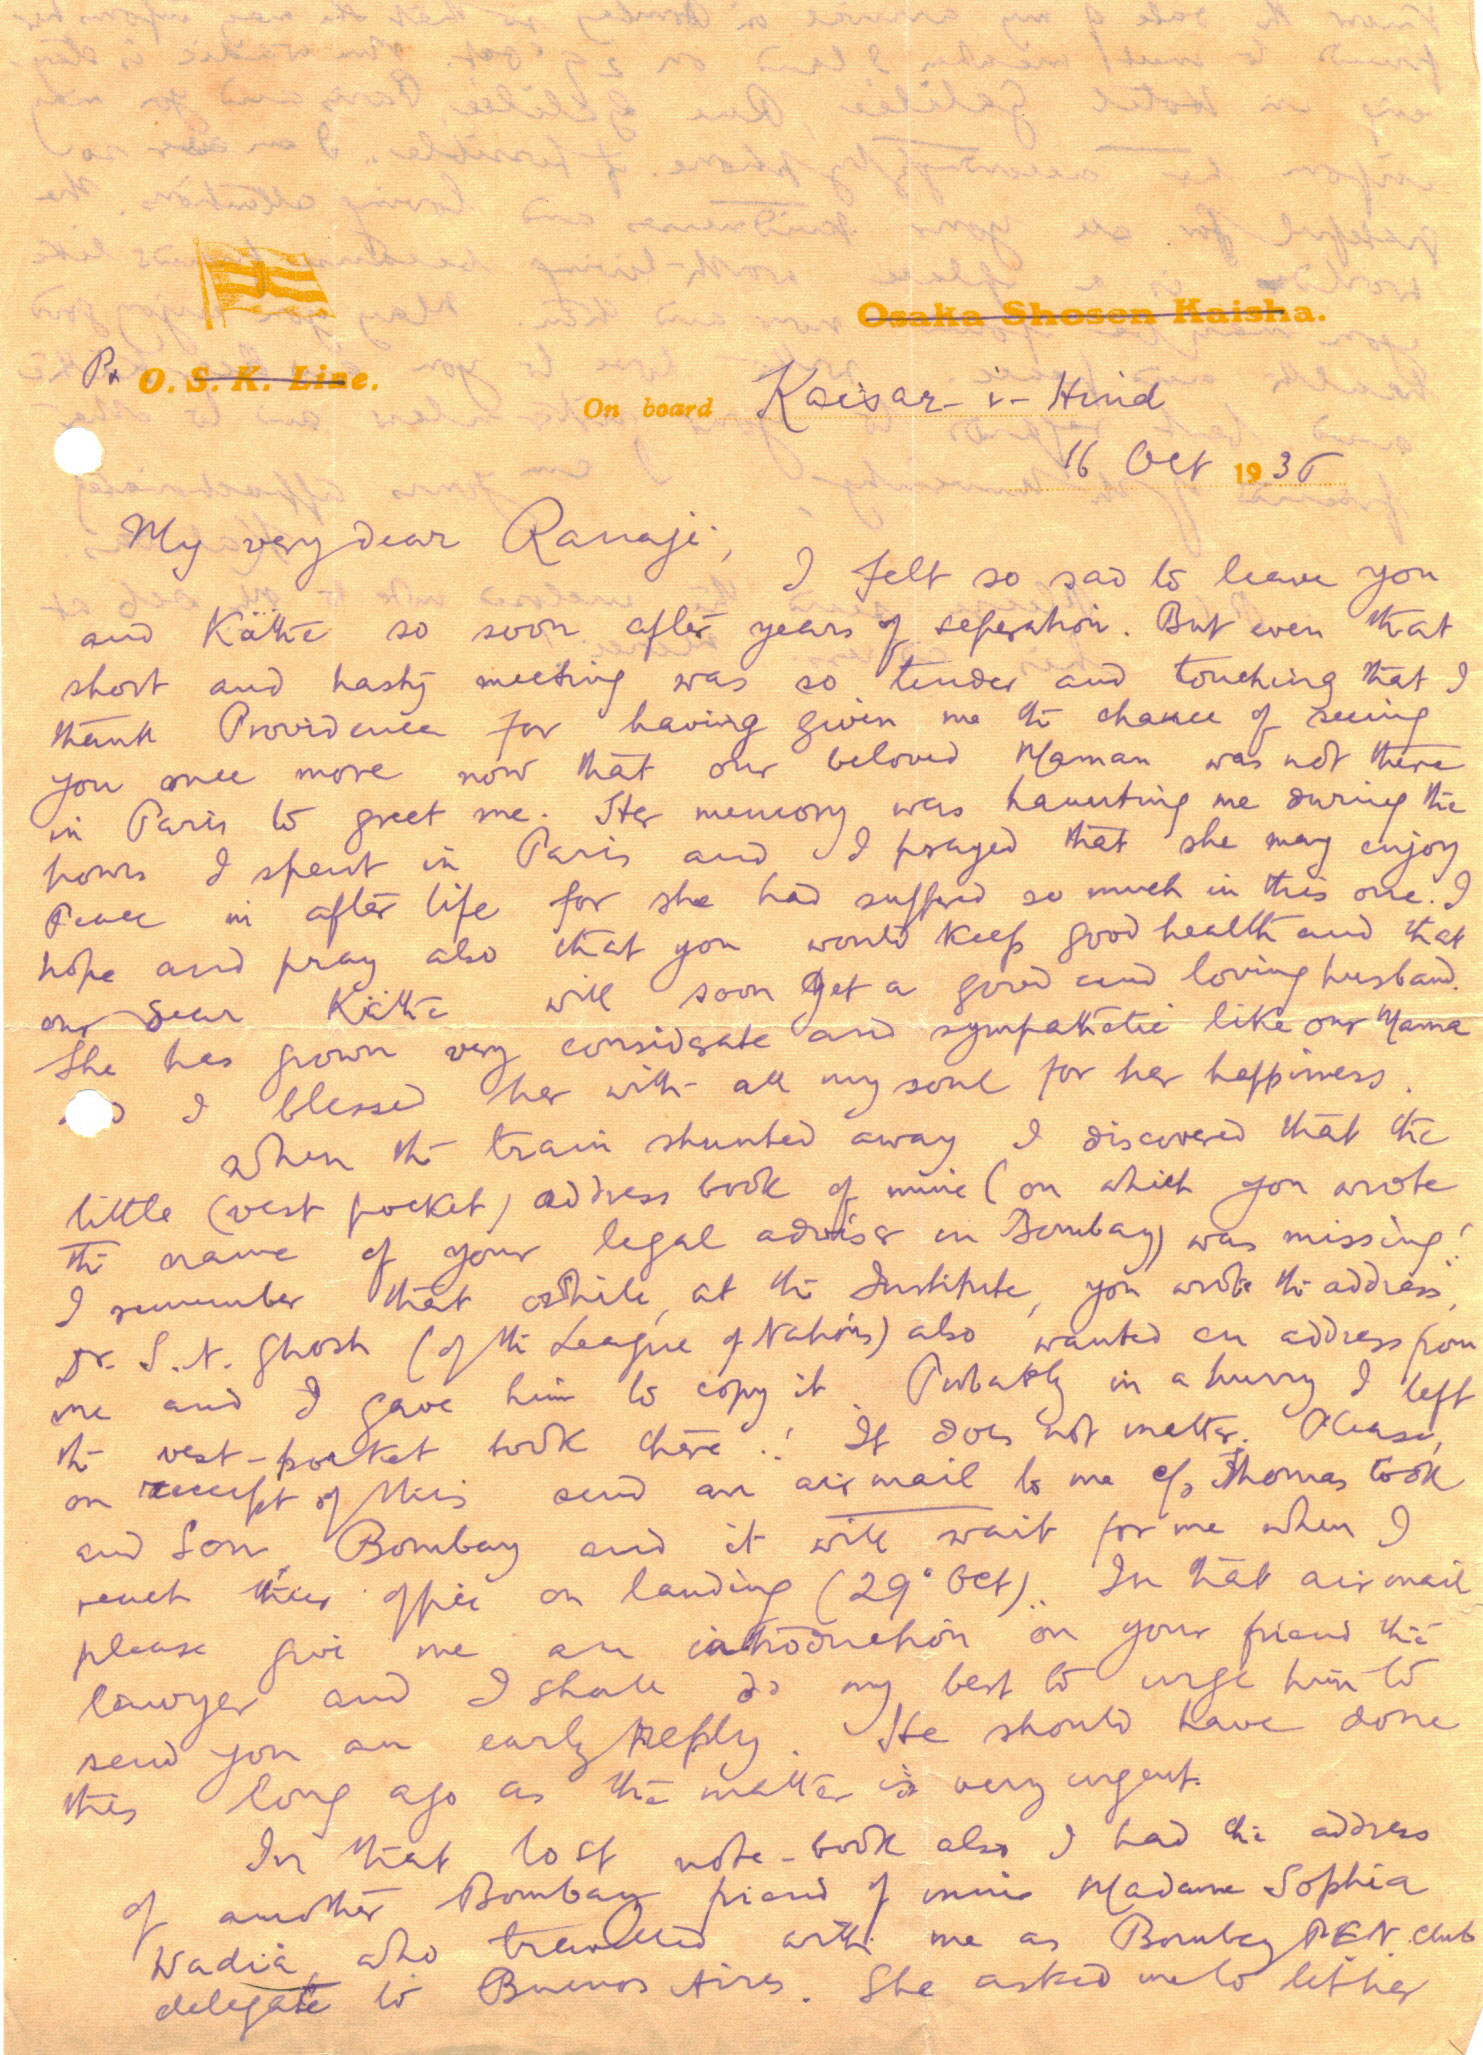 Osaka Shosen Kaisha.
O. S. K. Line.
On board Kaisar-i-Hind
16 Oct 1936
My very dear Ranaji,
I felt so sad to leave you
and Käthe so soon after years of seperation. But even that
short and hasty meeting was so tender and touching that I
thank Providence for having given me the chance of seeing
you once more now that our beloved Maman was not there
in Paris to greet me. Her memory was haunting me during the
hours I spent in Paris and I prayed that she may enjoy
Peace in after life for she had suffered so much in this one. I
hope and pray also that you would keep good health and that
our dear Käthe will soon get a good and loving husband.
She has grown very considerate and sympathetic like our Mama
I blessed her with all my soul for her happiness.
When the train shunted away I discovered that the
little (vest pocket) address book of mine (on which you wrote
the name of your legal adviser in Bombay) was missing!
I remember that while, at the Institute, you wrote the address,
Dr. S. N. Ghosh (of the League of Nations) also wanted an address from
me and I gave him to copy it Probably in a hurry I left
the vest-pocket book there! It does not matter. Please,
on receipt of this send an air mail to me c/o Thomas Cook
and Son, Bombay and it will wait for me when I
reach their office on landing (29° Oct). In that air mail
please give me an introduction on your friend the
lawyer and I shall do my best to urge him to
send you an early reply. He should have done
this long ago as the matter is very urgent.
In that lost note-book also I had the address
of another Bombay friend of mine Madame Sophia
Wadia, who travelled with me as Bombay P.E.N. Club
delegate to Buenos Aires. She asked me to let her